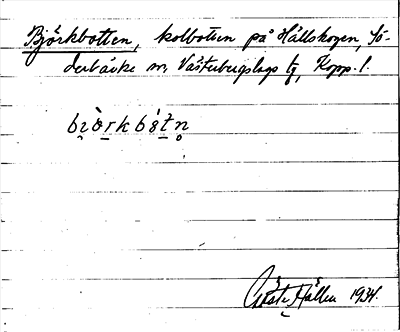 Björkbotten, kolbotten på Hållskogen, Sö-
derbärke sn, Västerbergslags tg, Kopp. l.
Gösta Hallen 1934.